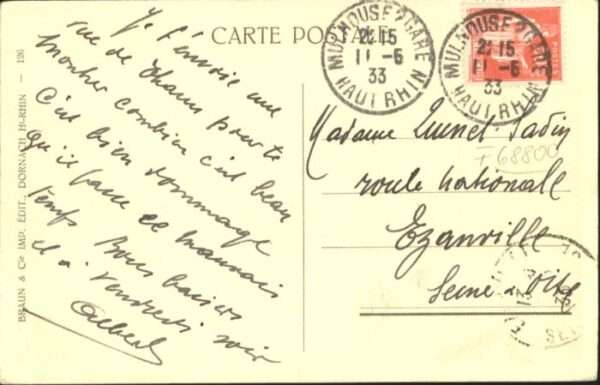 CARTE POSTALE
Je t'envoie une
rue de Thann pour te
montrer combien c'est beau
c'est bien dommage
qu'il fasse ce mauvais
temps Bons baisers
et à vendredi soir
Albert
BRAUN & Cie IMP. ÉDIT., DORNACH Ht-RHIN — 126
MULHOUSE GARE
21 15
11 - 6
33
HAUT RHIN
MULHOUSE GARE
21 15
11 - 6
33
HAUT RHIN
Madame
F68800
route Nationale
Ezanville
Seine & Oise